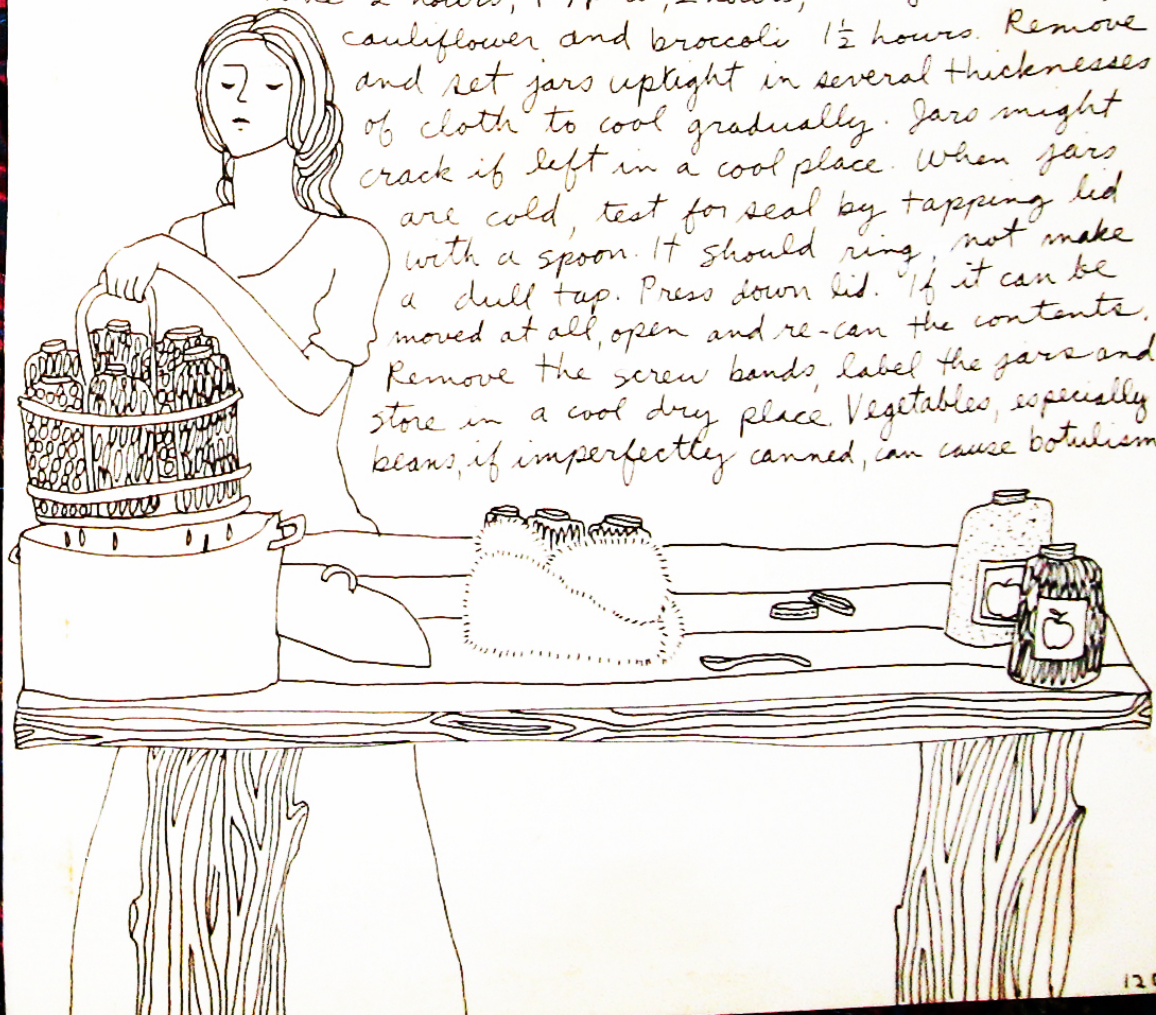 2 hours,
cauliflower and broccoli 1½ hours. Remove
and set jars uptight in several thicknesses
of cloth to cool gradually. Jars might
crack if left in a cool place. When jars
are cold, test for seal by tapping lid
with a spoon. It should ring, not make
a dull tap. Press down lid. If it can be
moved at all, open and re-can the contents.
Remove the screw bands, label the jars and
store in a cool dry place. Vegetables, especially
beans, if imperfectly canned, can cause botulism